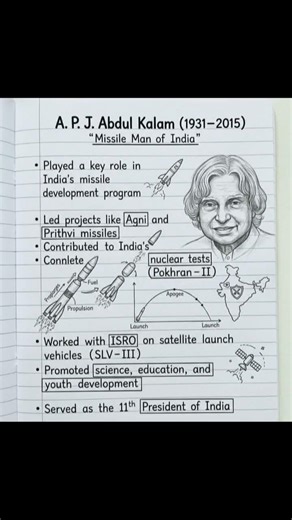 A. P. J. Abdul Kalam (1931–2015)
"Missile Man of India"
• Played a key role in
India's missile
development program
• Led projects like Agni and
Prithvi missiles
• Contributed to India's
• Connlete nuclear tests
(Pokhran–II)
Fuel
Propulsion
Apogee
Launch
Launch
• Worked with ISRO on satellite launch
vehicles (SLV–III)
• Promoted science, education, and
youth development
• Served as the 11th President of India